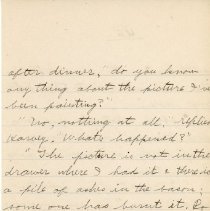 after dinner, "do you know
any thing about the picture I've
been painting?"
"No, nothing at all," replied
Harvey. "Whats happened?"
"The picture is not in the
drawer where I had it & there is
a pile of ashes in the bason;
some one has burnt it.